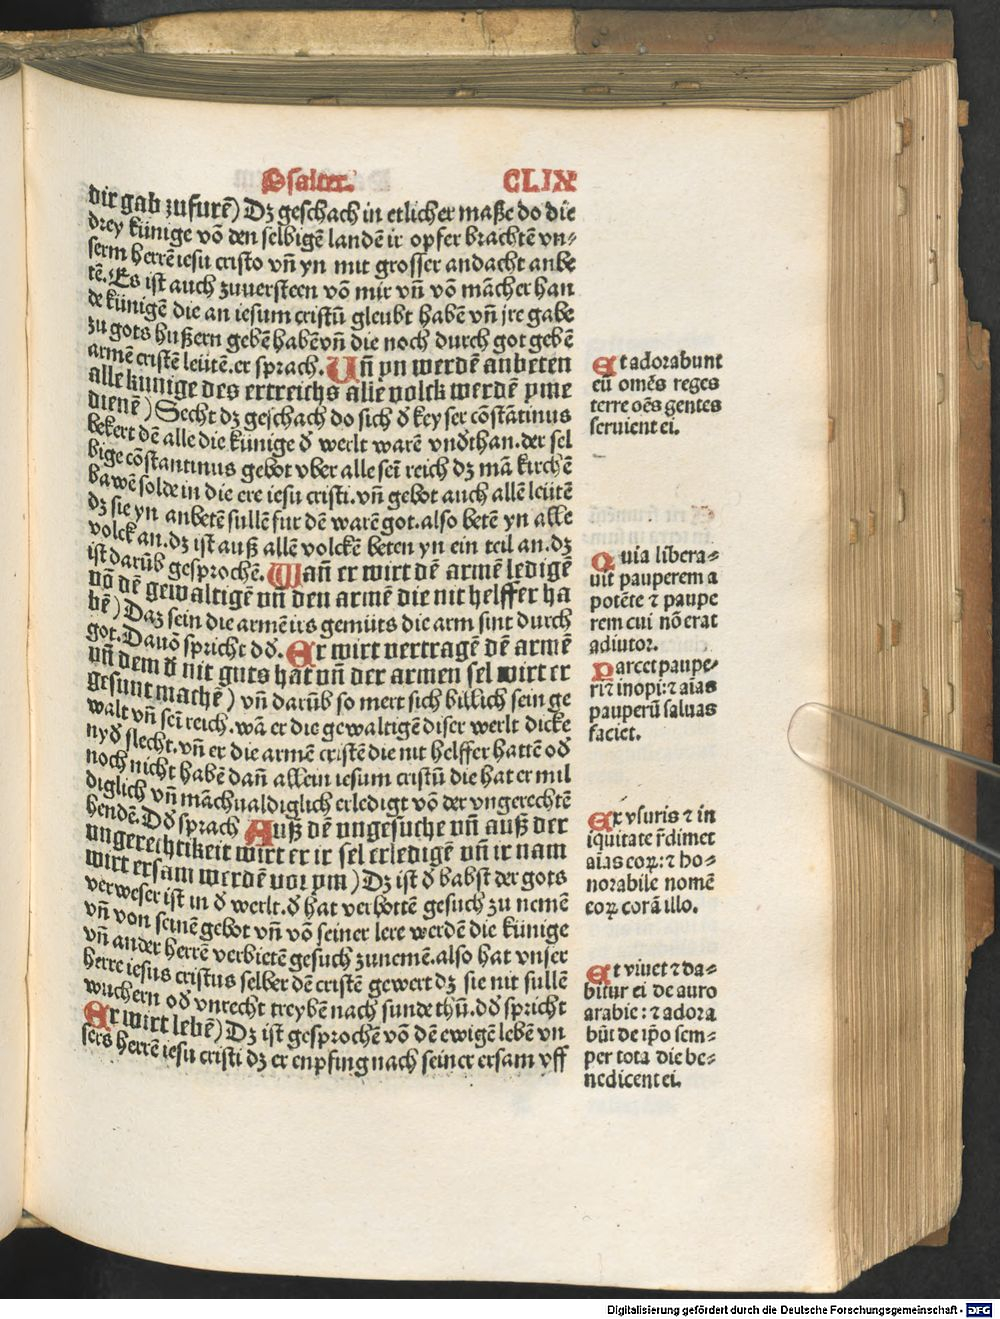 Psalter. CLIX
dir gab zufurē) Dz geschach in etlicher maße do die
drey künige vō den selbigē landē ir opfer brachtē vn⸗
serm herrē iesu cristo vñ yn mit grosser andacht anbe
tē. Es ist auch zuuersteen vō mir vñ vō mācher han
de künigē die an iesum cristū gleubt habē vñ jre gabe
zu gots hußern gebē habē vñ die noch durch got gebē
armē cristē leütē. er sprach. Uñ yn werdē anbeten
alle kunige des ertreichs alle volck werdē yme
dienē) Secht dz geschach do sich d̄ keyser cōstātinus
bekert dē alle die künige d̄ werlt warē vnd̄than. der sel
bige cōstantinus gebot vber alle sei̅ reich dz mā kirchē
bawē solde in die ere iesu cristi. vñ gebot auch allē leütē
dz sie yn anbetē sullē fur dē warē got. also betē yn alle
volck an. dz ist auß allē volckē beten yn ein teil an. dz
ist darūb gesprochē. Wañ er wirt dē armē ledigē
vō dē gewaltigē vñ den armē die nit helffer ha
bē) Daz sein die armē irs gemüts die arm sint durch
got. Dauō spricht dd̄. Er wirt vertragē dē armē
vñ dem d̄ nit guts hat vñ der armen sel wirt er
gesunt machē) vñ darūb so mert sich billich sein ge
walt vñ sei̅ reich. wā er die gewaltigē diser werlt dicke
nyd̄ slecht. vñ er die armē cristē die nit helffer hattē od̄
noch nicht habē dañ allein iesum cristū die hat er mil
diglich vñ māchualdiglich erledigt vō der vngerechtē
hendē. Dd̄ sprach Auß dē vngesuche vñ auß der
vngerechtikeit wirt er ir sel erledigē vñ ir nam
wirt ersam werdē vor ym) Dz ist d̄ babst der gots
verweser ist in d̄ werlt. d̄ hat verbottē gesuch zu nemē
vñ von seinē gebot vñ vō seiner lere werdē die künige
vñ ander herrē verbietē gesuch zunemē. also hat vnser
herre iesus cristus selber dē cristē gewert dz sie nit sullē
wuchern od̄ vnrecht treybē nach sunde thū. dd̄ spricht
Er wirt lebē) Dz ist gesprochē vō dē ewigē lebē vn
sers herrē iesu cristi dz er enpfing nach seiner ersam vff
Et adorabunt
eū omēs reges
terre oēs gentes
seruient ei.
Quia libera⸗
uit pauperem a
potēte ⁊ paupe
rem cui nō erat
adiutor.
Parcet paupe⸗
ri ⁊ inopi: ⁊ aīas
pauperū saluas
faciet.
Ex vsuris ⁊ in
iquitate r̄dimet
aīas eoꝝ: ⁊ ho⸗
norabile nomē
eoꝝ corā illo.
Et viuet ⁊ da⸗
bitur ei de auro
arabie: ⁊ adora
būt de ip̄o sem⸗
per tota die be⸗
nedicent ei.
Digitalisierung gefördert durch die Deutsche Forschungsgemeinschaft - DFG